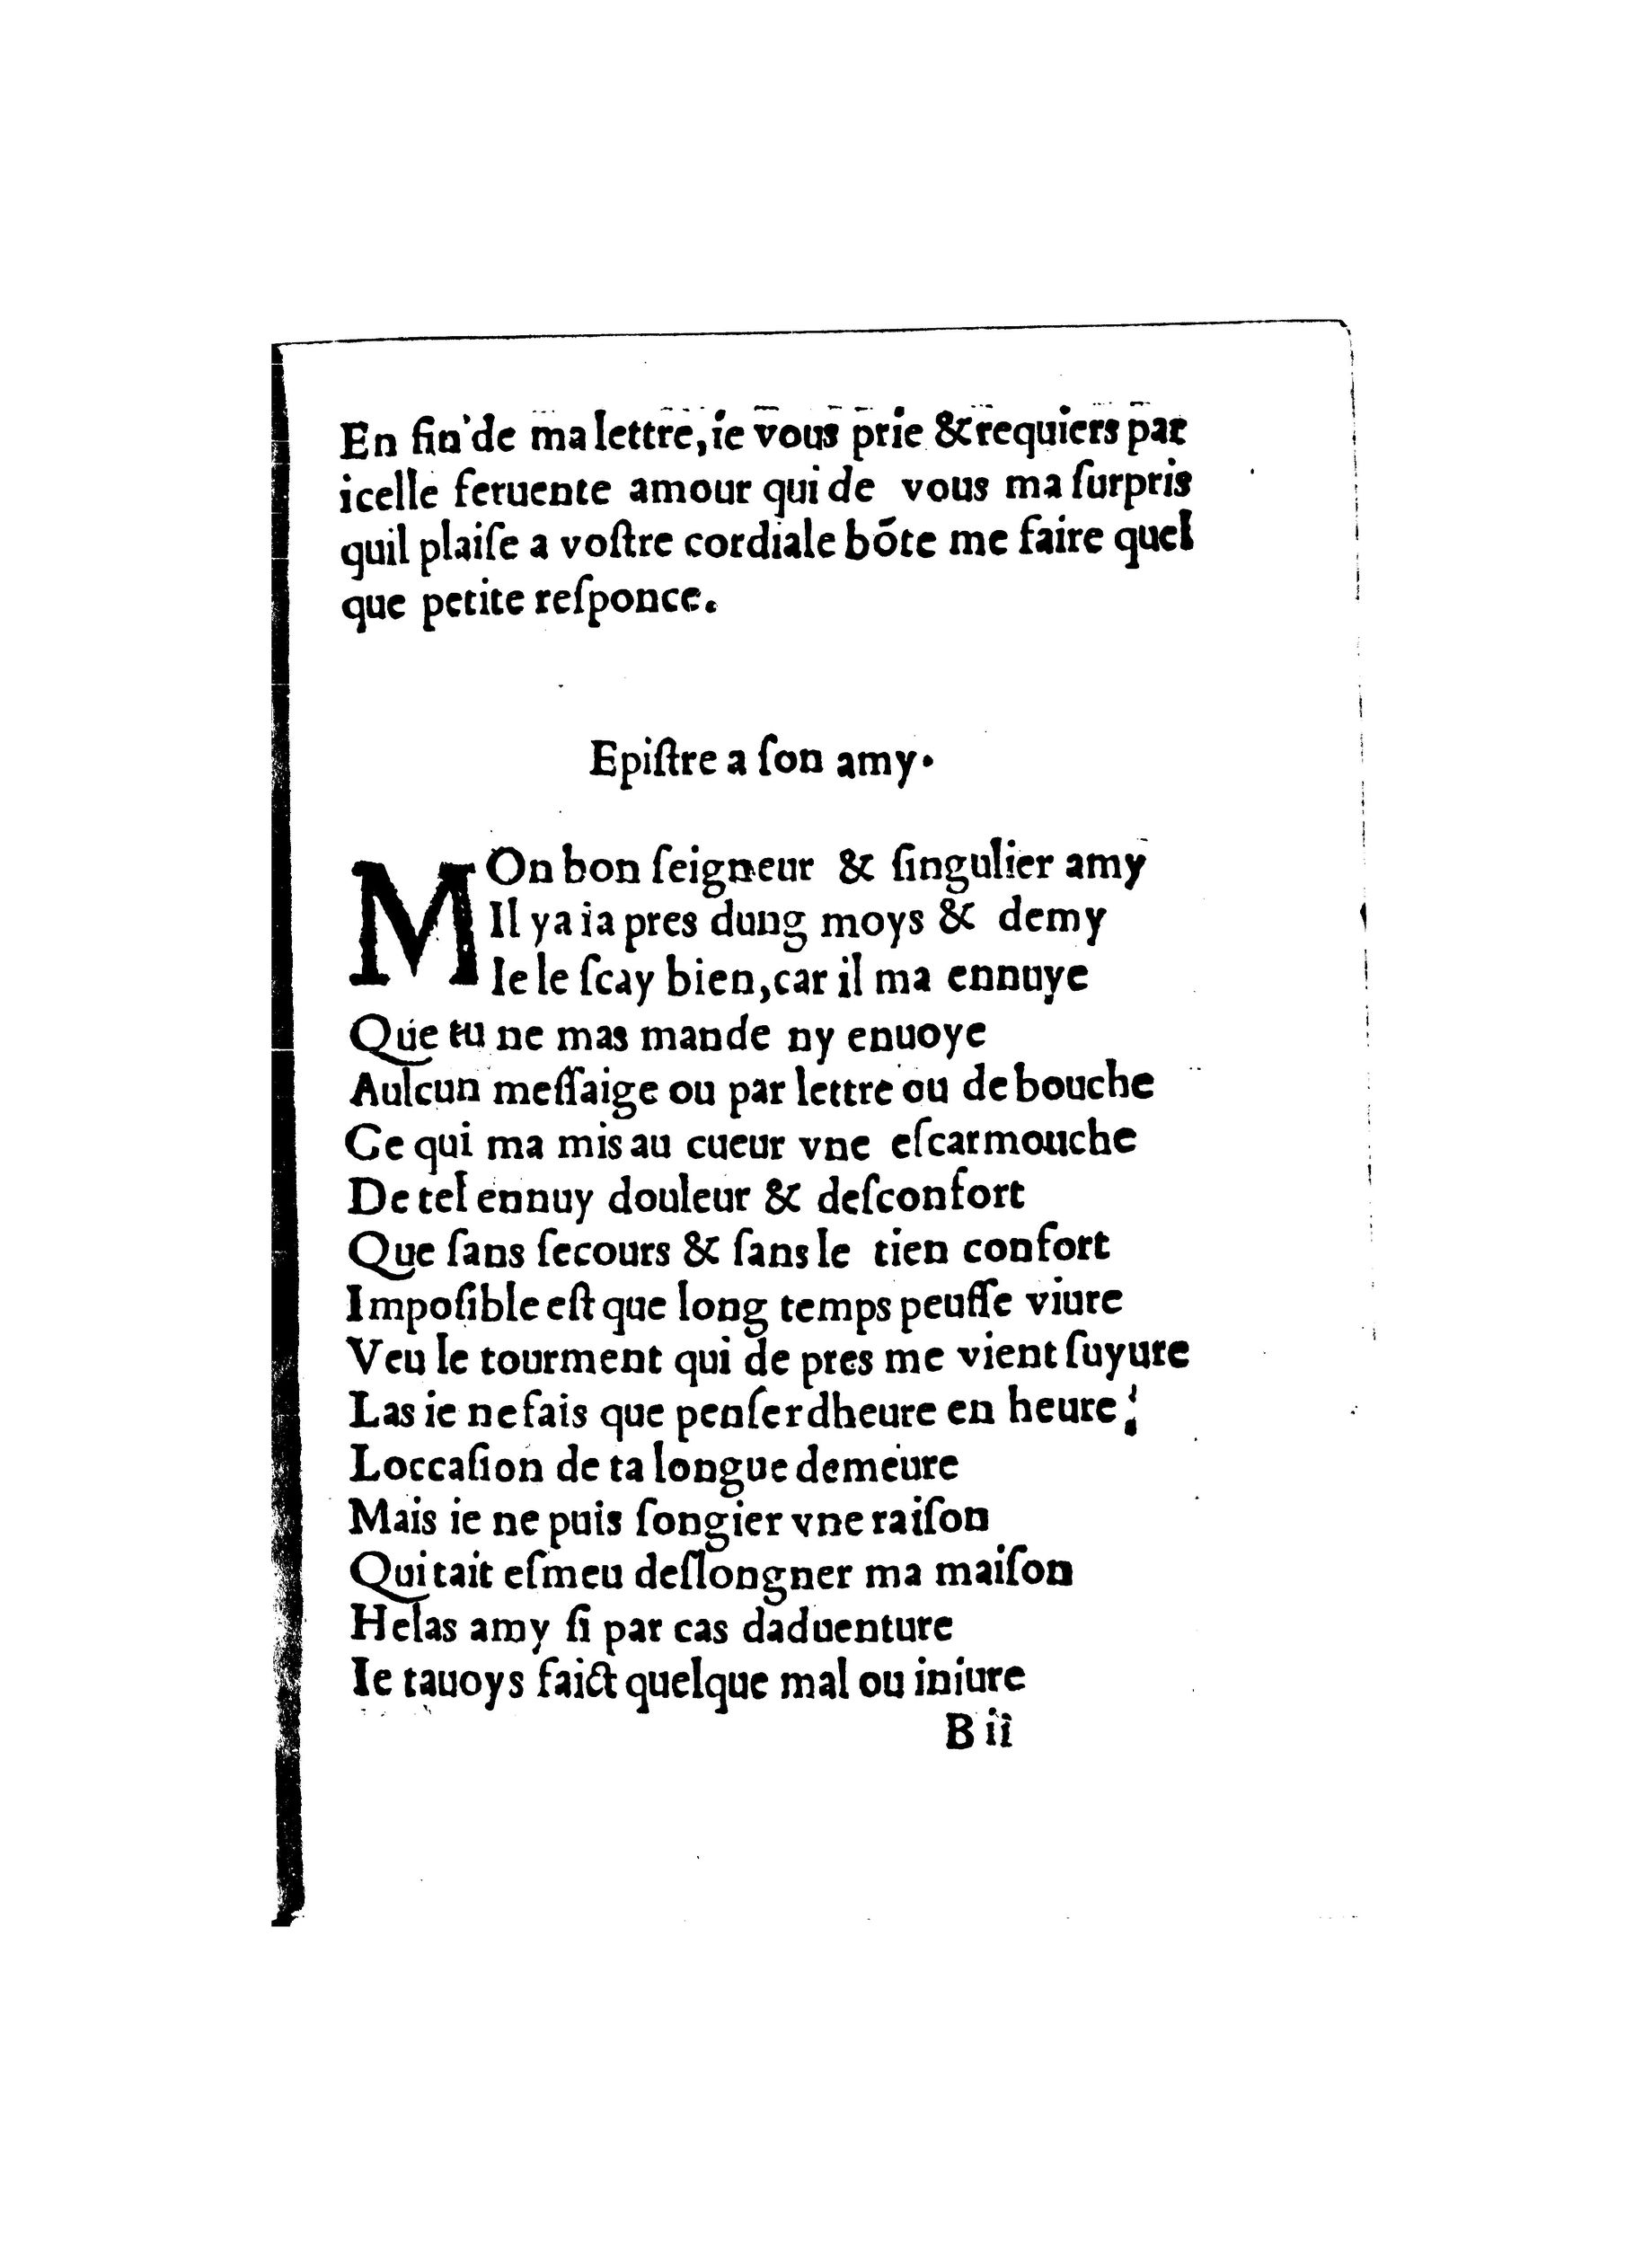 En fin de ma lettre, ie vous prie & requiers par
icelle feruente amour qui de vous ma ſurpris
quil plaiſe a voſtre cordiale bõte me faire quel
que petite reſponce.
Epiſtre a ſon amy.
MOn bon ſeigneur & ſingulier amy
Il ya ia pres dung moys & demy
Ie le ſcay bien, car il ma ennuye
Que tu ne mas mande ny enuoye
Aulcun meſſaige ou par lettre ou de bouche
Ce qui ma mis au cueur vne eſcarmouche
De tel ennuy douleur & deſconfort
Que ſans ſecours & ſans le tien confort
Impoſible eſt que long temps peuſſe viure
Veu le tourment qui de pres me vient ſuyure
Las ie ne fais que penſer dheure en heure
Loccaſion de ta longue demeure
Mais ie ne puis ſongier vne raiſon
Qui tait eſmeu deſlongner ma maiſon
Helas amy ſi par cas daduenture
Ie tauoys faict quelque mal ou iniure
B ii